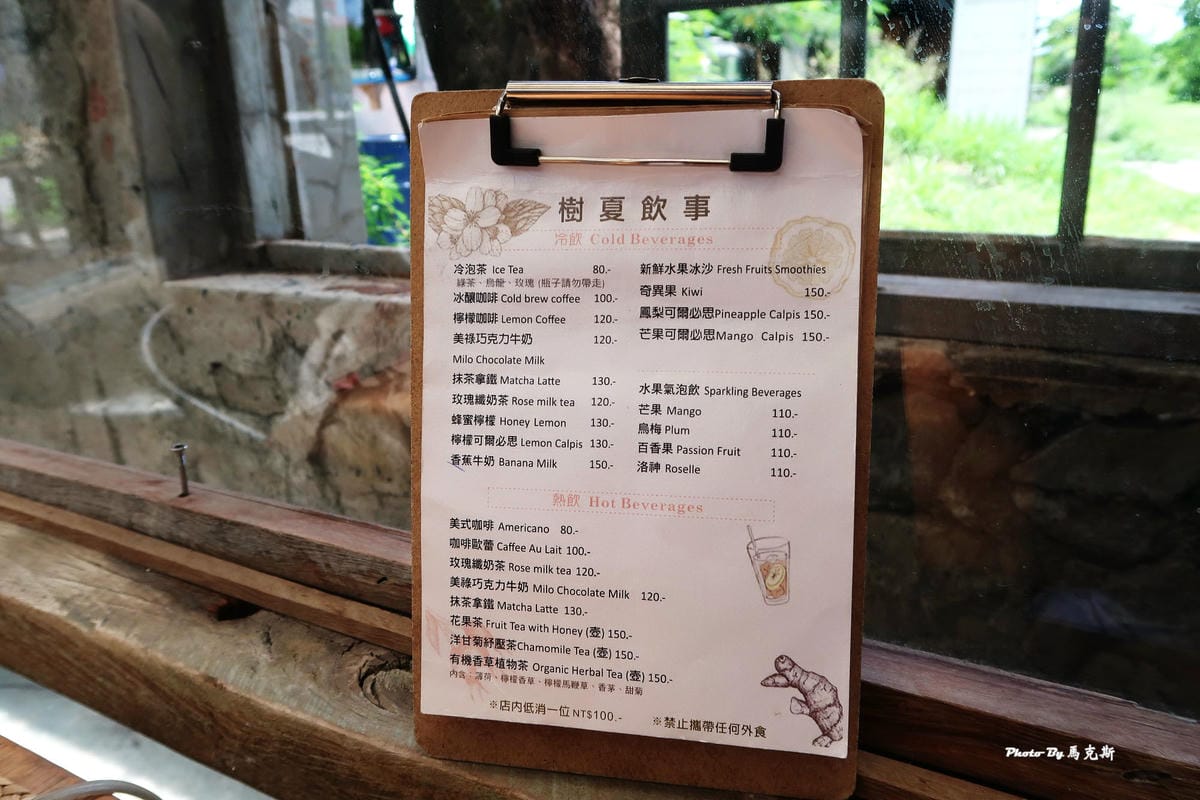 樹夏飲事
冷飲 Cold Beverages
冷泡茶 Ice Tea 80.-
綠茶、烏龍、玫瑰 (瓶子請勿帶走)
冰釀咖啡 Cold brew coffee 100.-
檸檬咖啡 Lemon Coffee 120.-
美祿巧克力牛奶 120.-
Milo Chocolate Milk
抹茶拿鐵 Matcha Latte 130.-
玫瑰纖奶茶 Rose milk tea 120.-
蜂蜜檸檬 Honey Lemon 130.-
檸檬可爾必思 Lemon Calpis 130.-
香蕉牛奶 Banana Milk 150.-
新鮮水果冰沙 Fresh Fruits Smoothies
奇異果 Kiwi 150.-
鳳梨可爾必思Pineapple Calpis 150.-
芒果可爾必思Mango Calpis 150.-
水果氣泡飲 Sparkling Beverages
芒果 Mango 110.-
烏梅 Plum 110.-
百香果 Passion Fruit 110.-
洛神 Roselle 110.-
熱飲 Hot Beverages
美式咖啡 Americano 80.-
咖啡歐蕾 Caffee Au Lait 100.-
玫瑰纖奶茶 Rose milk tea 120.-
美祿巧克力牛奶 Milo Chocolate Milk 120.-
抹茶拿鐵 Matcha Latte 130.-
花果茶 Fruit Tea with Honey (壺) 150.-
洋甘菊紓壓茶Chamomile Tea (壺) 150.-
有機香草植物茶 Organic Herbal Tea (壺) 150.-
內含：薄荷、檸檬香草、檸檬馬鞭草、香茅、甜菊
※店內低消一位 NT$100.-
※禁止攜帶任何外食
Photo By 馬克斯